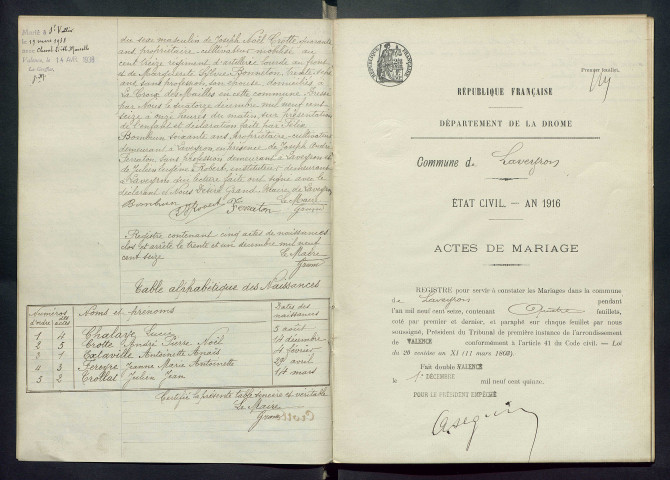 Marié à St Vallier
le 19 mars 1938
avec
Valence, le 14 AVR. 1938
du sexe masculin de Joseph Noël Crotte, quarante
ans propriétaire-cultivateur mobilisé au
cent treize régiment d'artillerie lourde au front
et de Marguerite
ans sans profession son épouse, domiciliés à
La Croix des Mailles en cette commune. Dressé
par Nous le quatorze décembre mil neuf cent
seize à onze heures du matin, sur présentation
de l'enfant et déclaration faite par Félix
Bonhun soixante ans propriétaire-cultivateur
demeurant à Laveyron, en présence de Joseph André
Ferraton sans profession demeurant à Laveyron et
de Julien Eugène Robert, instituteur demeurant
à Laveyron qui lecture faite ont signé avec le
déclarant et Nous Désiré Grand, Maire de Laveyron
Robert Ferraton Le Maire
Registre contenant cinq actes de naissances
clos et arrêté le trente et un décembre mil neuf
cent seize Le Maire
Table alphabétique des Naissances
Numéros d'ordre des actes Noms et prénoms Dates des naissances
1 4 Chalaye Lucie 3 août
2 5 Crotte André Pierre Noël 14 décembre
3 1 Extaville Antoinette Anaïs 4 février
4 3 Feroyre Jeanne Marie Antoinette 29 avril
5 2 Crollat Julien Jean 14 mars
Certifié la présente table sincère et véritable
Le Maire
Premier feuillet.
RÉPUBLIQUE FRANÇAISE
DÉPARTEMENT DE LA DROME
Commune de Laveyron
ETAT CIVIL. — AN 1916
ACTES DE MARIAGE
REGISTRE pour servir à constater les Mariages dans la commune
de Laveyron pendant
l'an mil neuf cent seize, contenant Quatre feuillets,
coté par premier et dernier, et paraphé sur chaque feuillet par nous
soussigné, Président du Tribunal de première instance de l'arrondissement
de VALENCE conformément à l'article 41 du Code civil. — Loi
du 20 ventôse an XI (11 mars 1803).
Fait double VALENCE
le 1er DÉCEMBRE mil neuf cent quinze.
POUR LE PRÉSIDENT EMPÊCHÉ